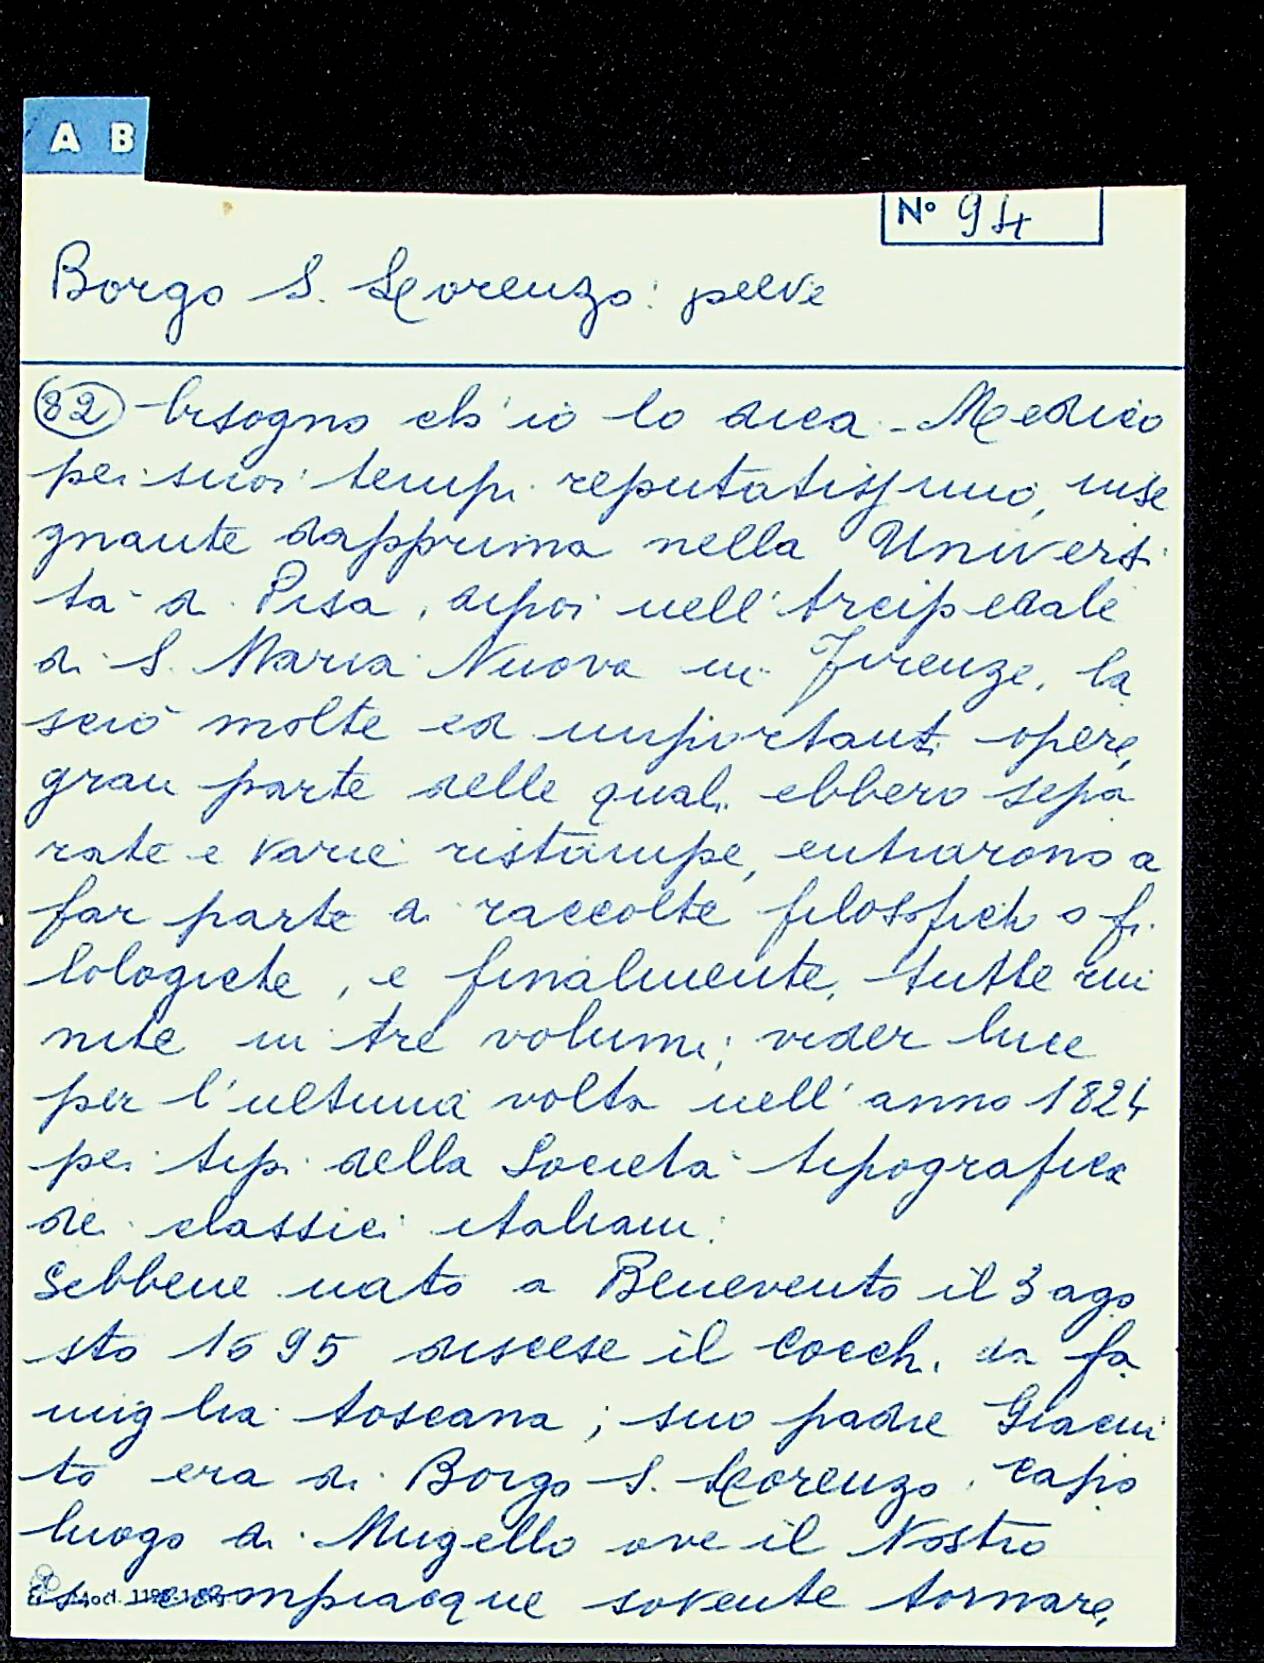 A B
Nº 94
Borgo S. Lorenzo: pieve
82 bisogno ch'io lo dica. Medico
pei suoi tempi reputatissimo, inse
gnante dapprima nella Universi
tà di Pisa, dipoi nell'Arcispedale
di S. Maria Nuova in Firenze, la
sciò molte ed importanti opere,
gran parte delle quali ebbero sepa
rate e varie ristampe, entrarono a
far parte di raccolte filosofich o fi
lologiche, e finalmente, tutte riu
nite in tre volumi; vider luce
per l'ultima volta nell'anno 1824
pei tipi della Società tipografica
dei classici italiani.
Sebbene nato a Benevento il 3 ago
sto 1695 discese il Cocchi da fa
miglia toscana; suo padre Giacin
to era di Borgo S. Lorenzo, capo
luogo di Mugello ove il Nostro
si compiacque sovente tornare,
Mod.